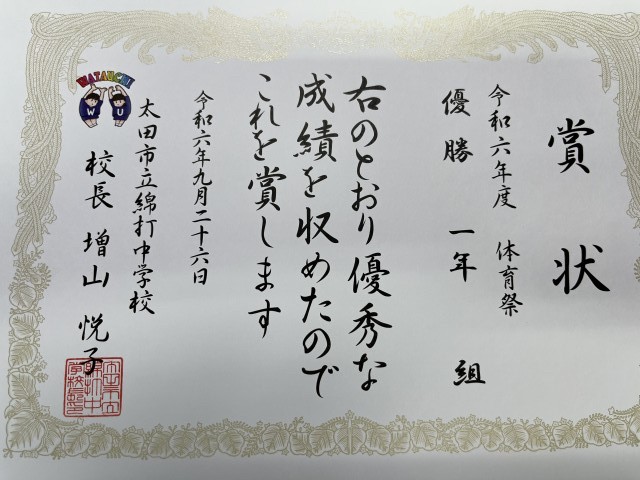 賞状
令和六年度 体育祭
優勝 一年 組
右のとおり優秀な
成績を収めたので
これを賞します
令和六年九月二十六日
太田市立綿打中学校
校長 増山 悦子
WATAUCHI
W U